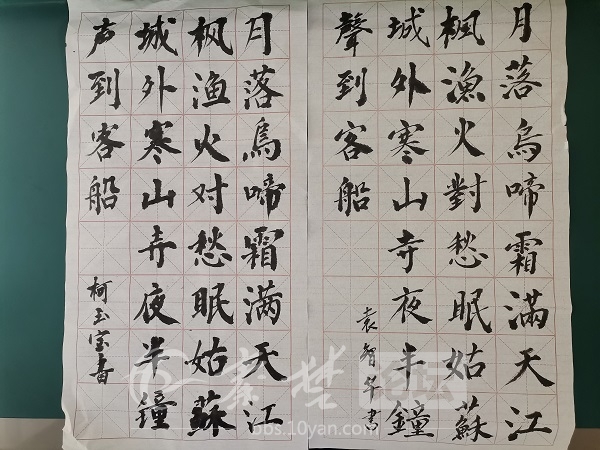 月落烏啼霜滿天江
楓漁火對愁眠姑蘇
城外寒山寺夜半鐘
聲到客船
袁智华書
月落烏啼霜满天江
枫渔火对愁眠姑蘇
城外寒山寺夜半鐘
声到客船
柯玉宝書
秦楚
bbs.10yan.com